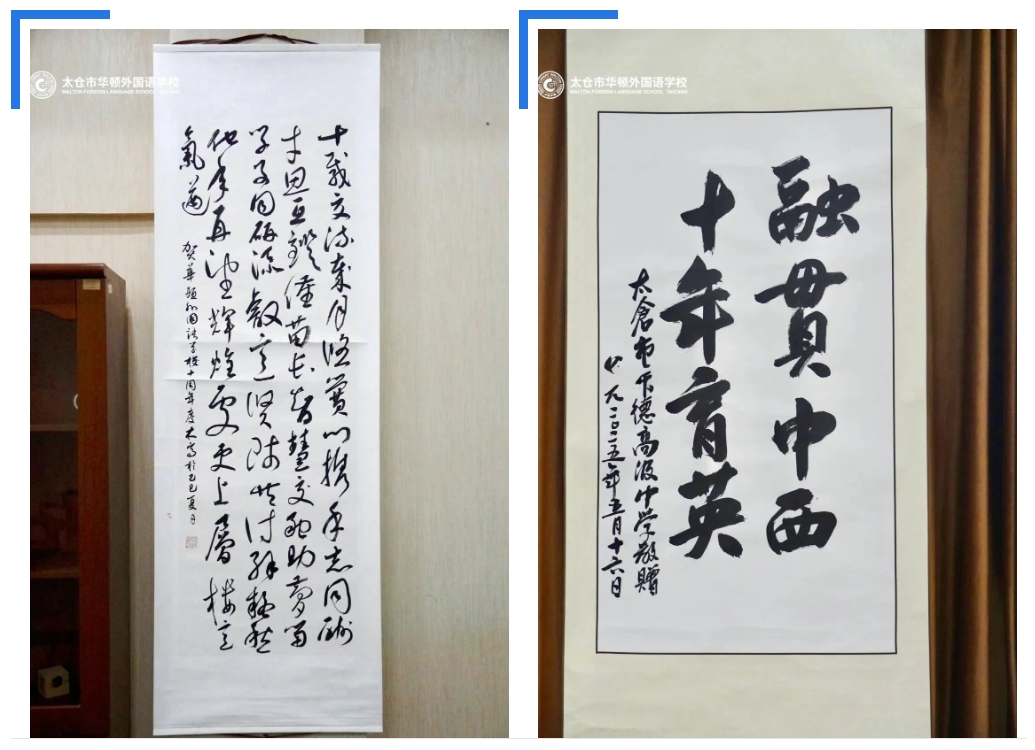 太仓市华顿外国语学校
WALTON FOREIGN LANGUAGE SCHOOL, TAICANG
十载交流岁月悠心携手志同酬
才思互鉴苗长智慧交融助梦留
学子同研添
他年再望辉煌处更上層楼意
氣遒
贺华顿外国语学校十周年庆於乙巳夏月
太仓市华顿外国语学校
WALTON FOREIGN LANGUAGE SCHOOL, TAICANG
融贯中西
十年育英
太倉市明德高级中学敬赠
二〇二五年五月十六日